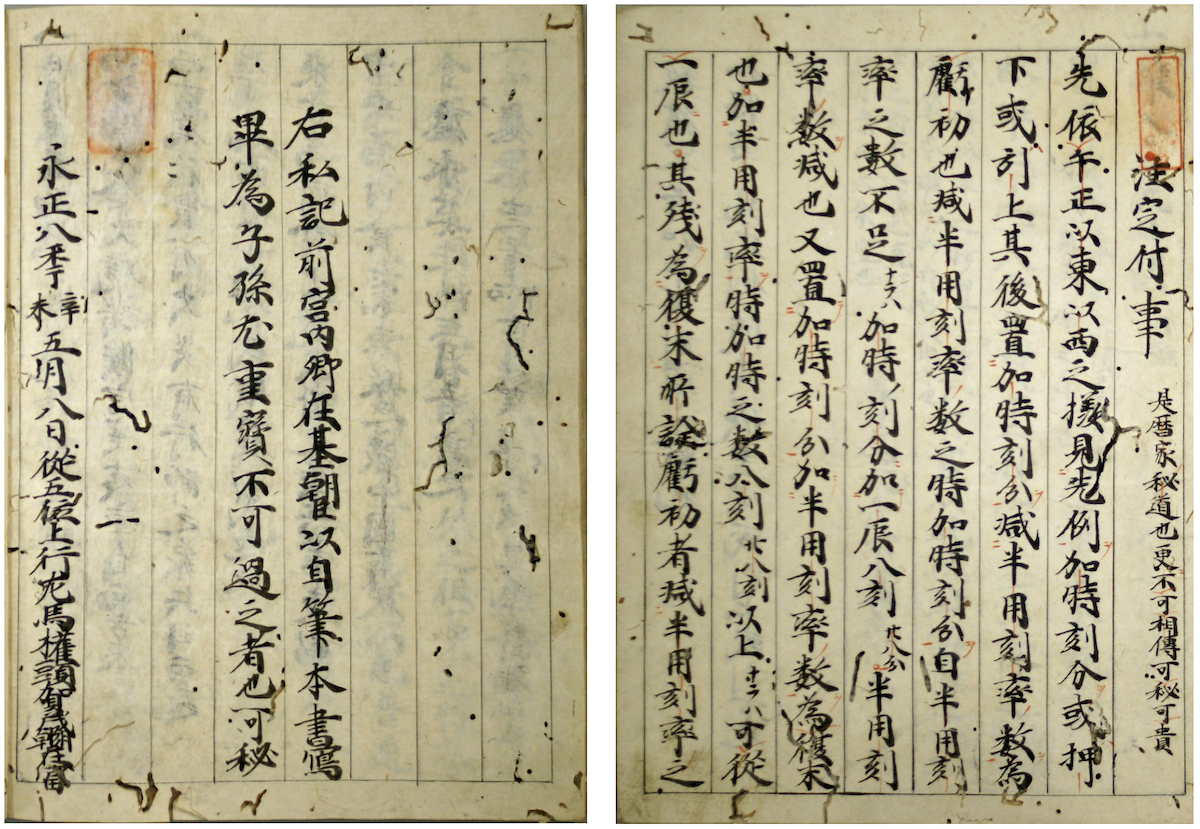 注定付事 是暦家秘道也更不可相傳可秘可貴
先依午正以東以西之様見先例加時刻分或押
下或引上其後置加時刻分减半用刻率数為
虧初也减半用刻率数之時加時刻分自半用刻
率之數不足 加時刻分加一辰八刻 半用刻
率数减也又置加時刻分加半用刻率数為復末
也加半用刻率時加時之数八刻 以上 可従
一辰也其残為復末所詮虧初者减半用刻率之
右私記前宮内卿在基朝臣以自筆本書寫
畢為子孫尤重寳不可過之者也可秘
永正八年辛未五月八日従五位上行 馬権頭賀茂朝臣